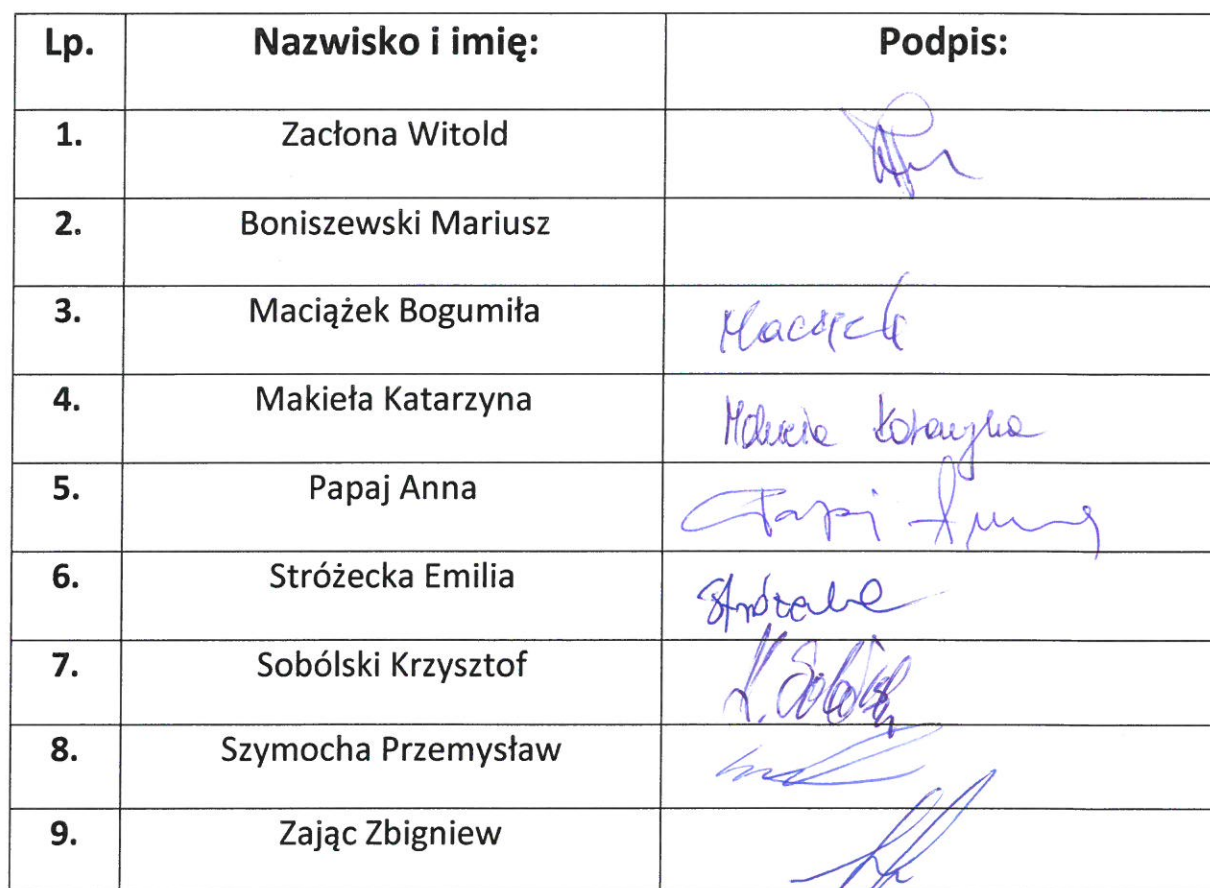 Lp. Nazwisko i imię: Podpis:
1. Zacłona Witold
2. Boniszewski Mariusz
3. Maciążek Bogumiła
4. Makieła Katarzyna Makieła Katarzyna
5. Papaj Anna Papaj Anna
6. Stróżecka Emilia
7. Sobólski Krzysztof
8. Szymocha Przemysław
9. Zając Zbigniew